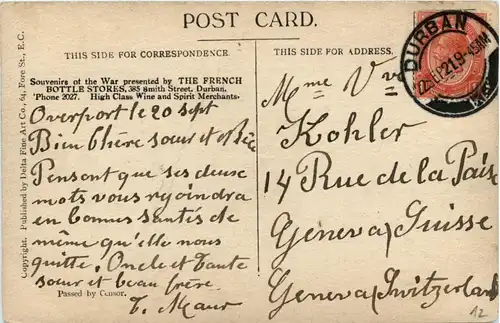 POST CARD.
THIS SIDE FOR CORRESPONDENCE.
THIS SIDE FOR ADDRESS.
Souvenirs of the War presented by THE FRENCH
BOTTLE STORES, 385 Smith Street, Durban.
'Phone 2027. High Class Wine and Spirit Merchants.
Overport le 20 Sept
Bien Chère sœur et
Pensont que ses deuse
mots vous rejoindra
en bonnes santés de
même qu'elle nous
quitte. Oncle et Tante
sœur et beau frère
Passed by Censor.
T. Maur
Copyright. Published by Delta Fine Art Co., 64, Fore St., E.C.
DURBAN
Mme Vve
Kohler
14 Rue de la Paix
Geneva Suisse
Geneva Switzerland
12